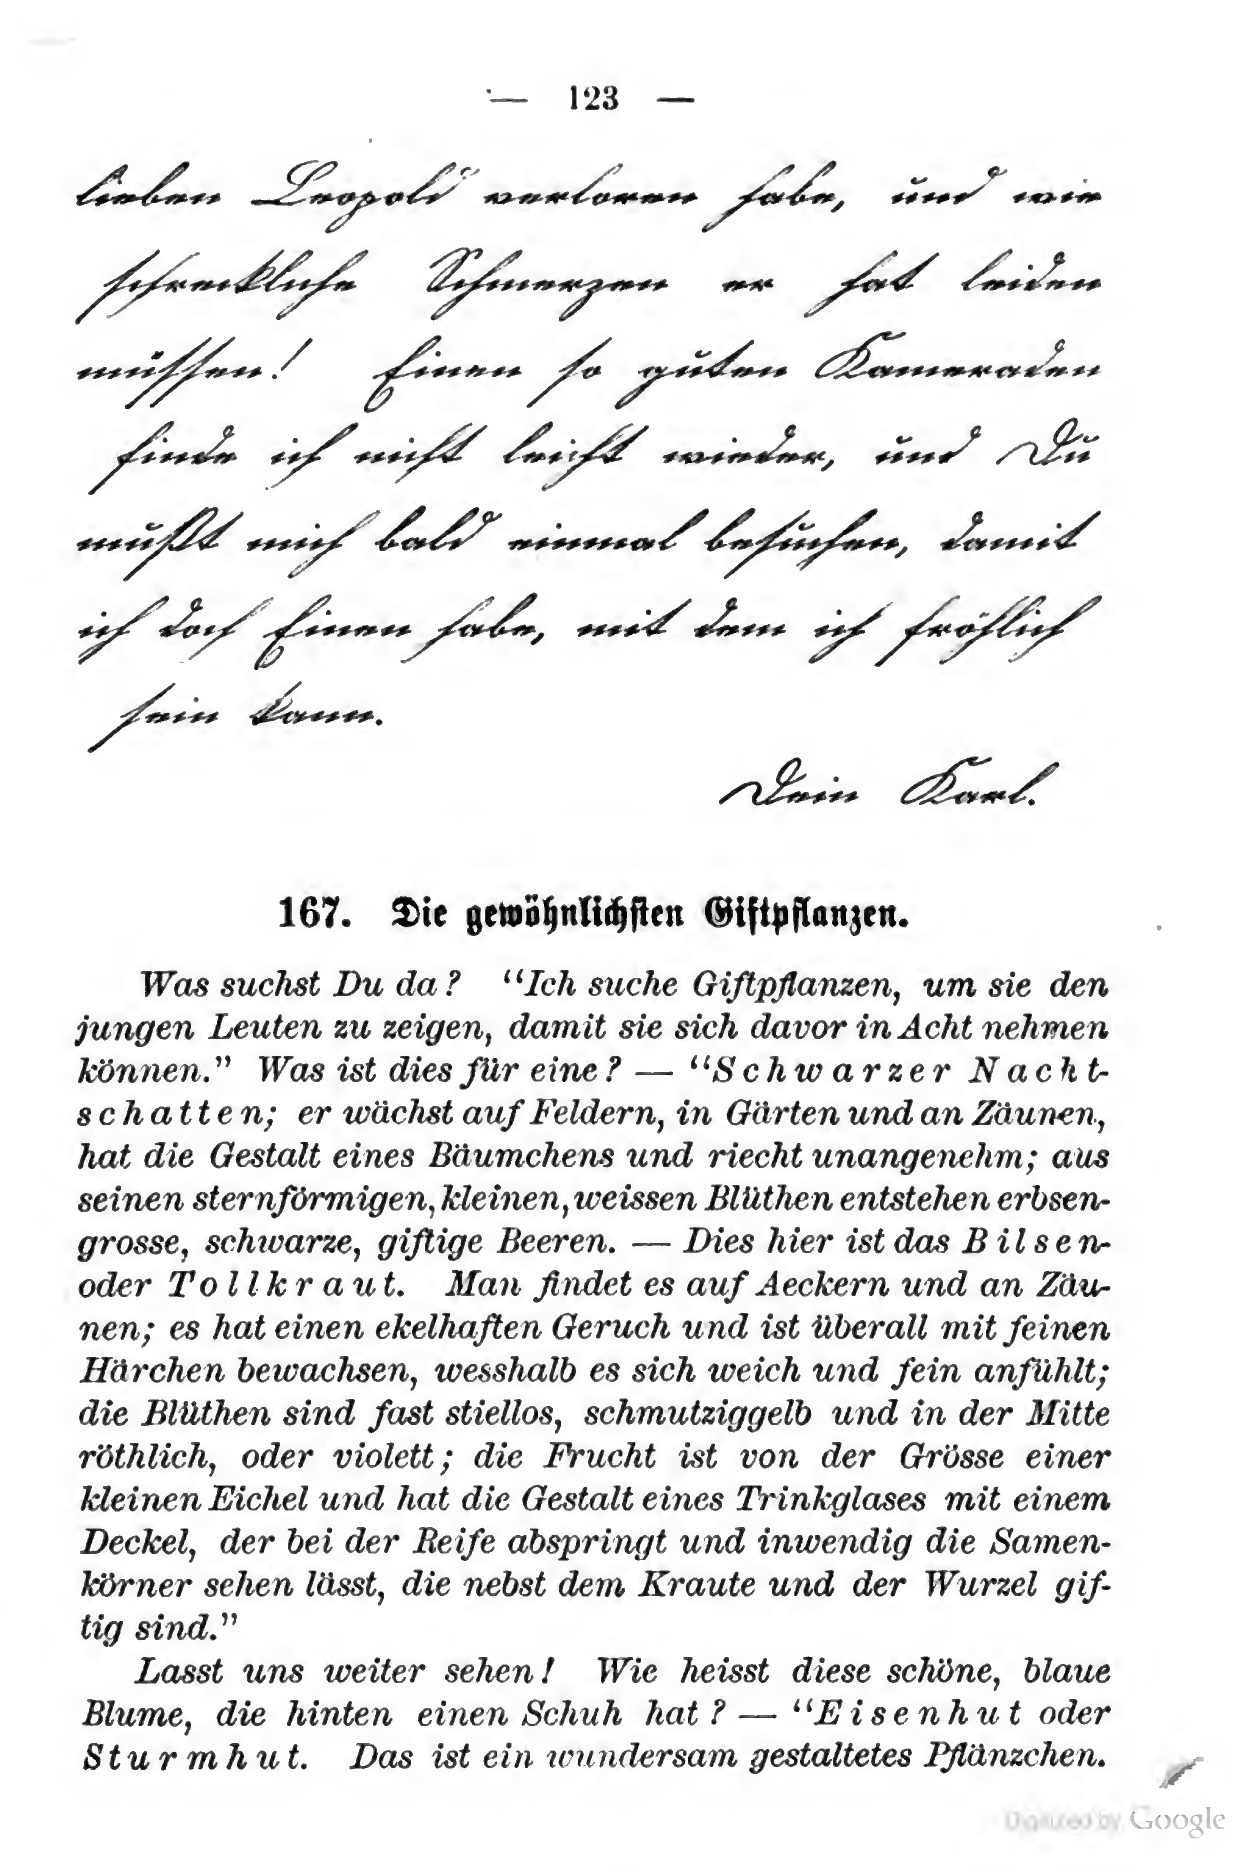 — 123 —
lieben Leopold verloren habe, und wie
schreckliche Schmerzen er hat leiden
müssen! Einen so guten Kameraden
finde ich nicht leicht wieder, und Du
mußt mich bald einmal besuchen, damit
ich doch Einen habe, mit dem ich fröhlich
sein kann.
Dein Karl.
167. Die gewöhnlichsten Giftpflanzen.
Was suchst Du da? “Ich suche Giftpflanzen, um sie den
jungen Leuten zu zeigen, damit sie sich davor in Acht nehmen
können.” Was ist dies für eine? — “Schwarzer Nacht-
schatten; er wächst auf Feldern, in Gärten und an Zäunen,
hat die Gestalt eines Bäumchens und riecht unangenehm; aus
seinen sternförmigen, kleinen, weissen Blüthen entstehen erbsen-
grosse, schwarze, giftige Beeren. — Dies hier ist das Bilsen-
oder Tollkraut. Man findet es auf Aeckern und an Zäu-
nen; es hat einen ekelhaften Geruch und ist überall mit feinen
Härchen bewachsen, wesshalb es sich weich und fein anfühlt;
die Blüthen sind fast stiellos, schmutziggelb und in der Mitte
röthlich, oder violett; die Frucht ist von der Grösse einer
kleinen Eichel und hat die Gestalt eines Trinkglases mit einem
Deckel, der bei der Reife abspringt und inwendig die Samen-
körner sehen lässt, die nebst dem Kraute und der Wurzel gif-
tig sind.”
Lasst uns weiter sehen! Wie heisst diese schöne, blaue
Blume, die hinten einen Schuh hat? — “Eisenhut oder
Sturmhut. Das ist ein wundersam gestaltetes Pflänzchen.
Digitized by Google